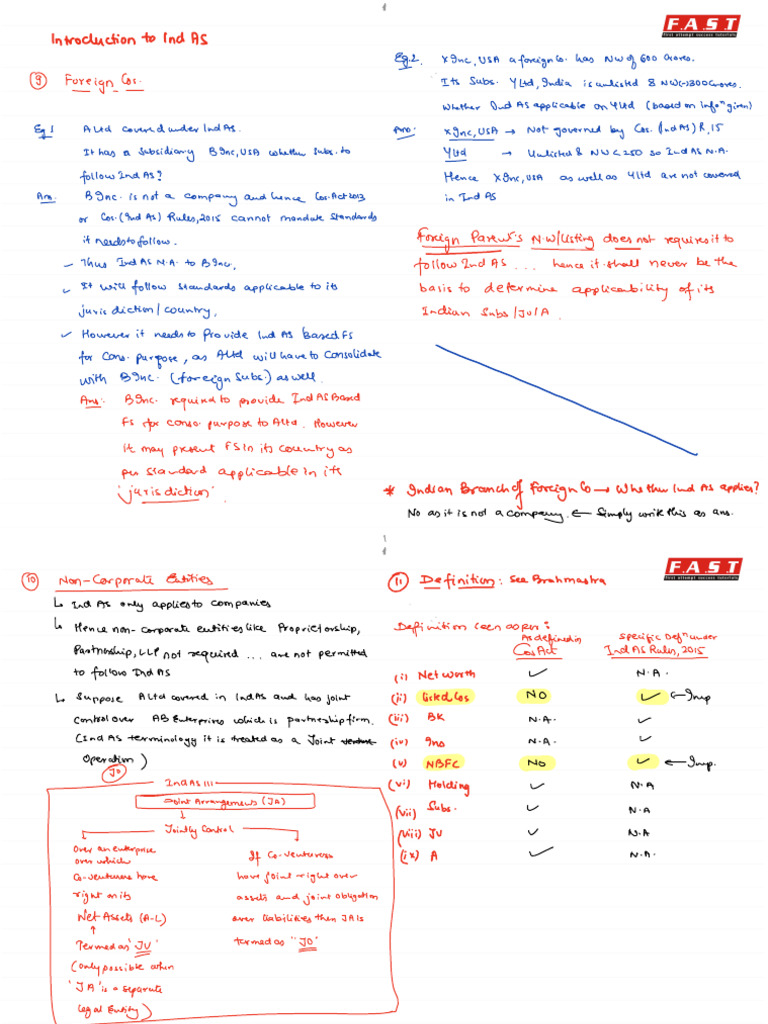 Introduction to Ind AS
9 Foreign Cos.
Eg 1 A Ltd covered under Ind AS.
It has a subsidiary B Inc, USA whether Subs. to
follow Ind AS?
Ans. B Inc. is not a company and hence Cos. Act 2013
or Cos. (Ind AS) Rules, 2015 cannot mandate standards
it needs to follow.
– Thus Ind AS N.A. to B Inc.
✓ It will follow standards applicable to its
jurisdiction / country.
✓ However it needs to Provide Ind AS based FS
for Cons. purpose, as A Ltd will have to Consolidate
with B Inc. (foreign Subs.) as well.
Ans: B Inc. required to provide Ind AS Based
FS for conso. purpose to A Ltd. However
it may present FS in its country as
per standard applicable in its
'jurisdiction'
F.A.S.T
First attempt success tutorials
Eg. 2. X Inc, USA a foreign Co. has NW of 600 Crores.
Its Subs. Y Ltd, India is unlisted & NW (-) 300 Crores.
Whether Ind AS applicable on Y Ltd (based on info^n given)
Ans: X Inc, USA → Not governed by Cos. (Ind AS) R, 15
Y Ltd → Unlisted & NW < 250 so Ind AS N.A.
Hence X Inc, USA as well as Y Ltd are not covered
in Ind AS
Foreign Parent's N.W/Listing does not requires it to
follow Ind AS ... hence it shall never be the
basis to determine applicability of its
Indian Subs / JV / A.
* Indian Branch of Foreign Co → Whether Ind AS applies?
No as it is not a company. ← Simply write this as ans.
10 Non-Corporate Entities
↳ Ind AS only applies to companies
↳ Hence non-corporate entities like Proprietorship,
Partnership, LLP not required ... are not permitted
to follow Ind AS
↳ Suppose A Ltd covered in Ind AS and has joint
control over AB Enterprises which is partnership firm.
(Ind AS terminology it is treated as a Joint venture
Operation)
JO
Ind AS 111
Joint Arrangements (JA)
Jointly Control
Over an enterprise
over which
Co-venturers have
right on its
Net Assets (A-L)
↑
Termed as 'JV'
(only possible when
'JA' is a separate
legal Entity)
If Co-venturers
have joint right over
assets and joint obligation
over liabilities then JA is
termed as "JO"
F.A.S.T
First attempt success tutorials
11 Definition: See Brahmastra
Definition seen as per:
As defined in Cos Act
Specific Def^n under Ind AS Rules, 2015
(i) Net worth ✓ N.A.
(ii) Listed Cos NO ✓ ← Imp
(iii) BK N.A. ✓
(iv) Ins N.A. ✓
(v) NBFC NO ✓ ← Imp.
(vi) Holding ✓ N.A
(vii) Subs. ✓ N.A
(viii) JV ✓ N.A.
(ix) A ✓ N.A.